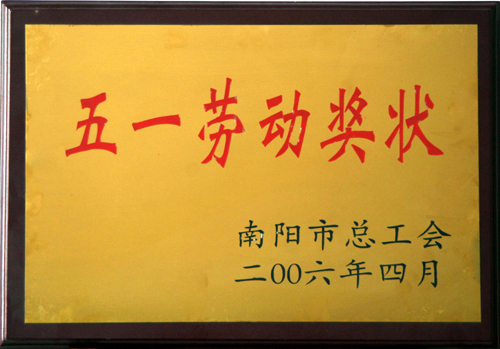 五一劳动奖状
南阳市总工会
二00六年四月